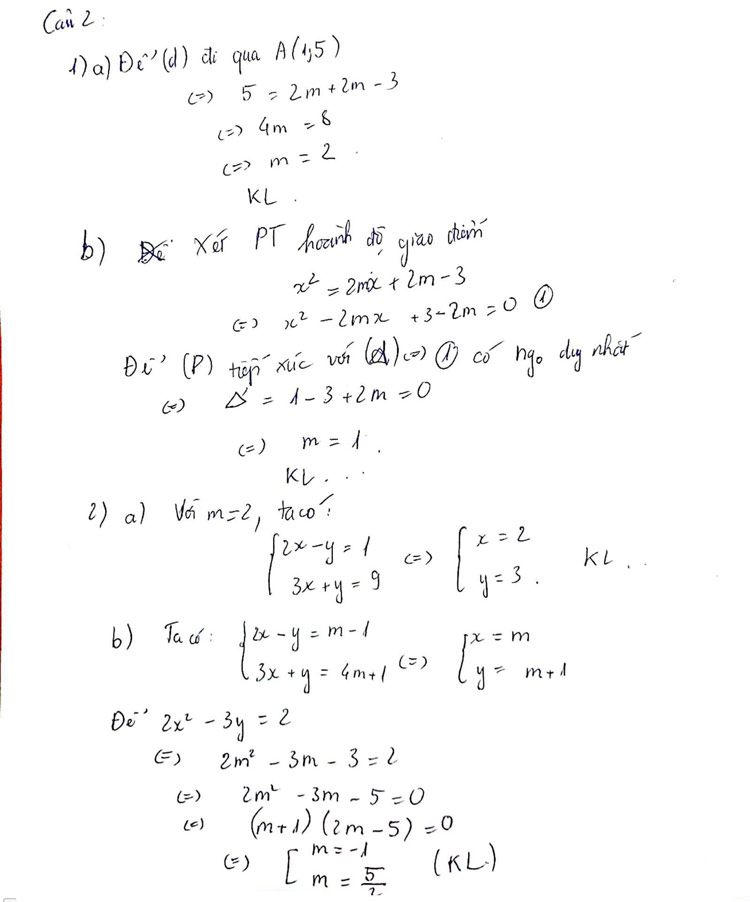 Câu 2:
1) a) Để (d) đi qua A(1;5)
(=) 5 = 2m + 2m - 3
(=) 4m = 8
(=) m = 2.
KL.
b) Xét PT hoành độ giao điểm
x² = 2mx + 2m - 3
(=) x² - 2mx + 3 - 2m = 0 ①
Để (P) tiếp xúc với (d) (=) ① có ngo duy nhất
(=) Δ' = 1 - 3 + 2m = 0
(=) m = 1.
KL...
2) a) Với m=2, ta có:
{2x - y = 1 (=) {x = 2 KL...
{3x + y = 9 {y = 3.
b) Ta có: {2x - y = m - 1 (=) {x = m
{3x + y = 4m+1 {y = m+1
Để 2x² - 3y = 2
(=) 2m² - 3m - 3 = 2
(=) 2m² - 3m - 5 = 0
(=) (m+1)(2m-5) = 0
(=) [m = -1 (KL.)
[m = 5/2